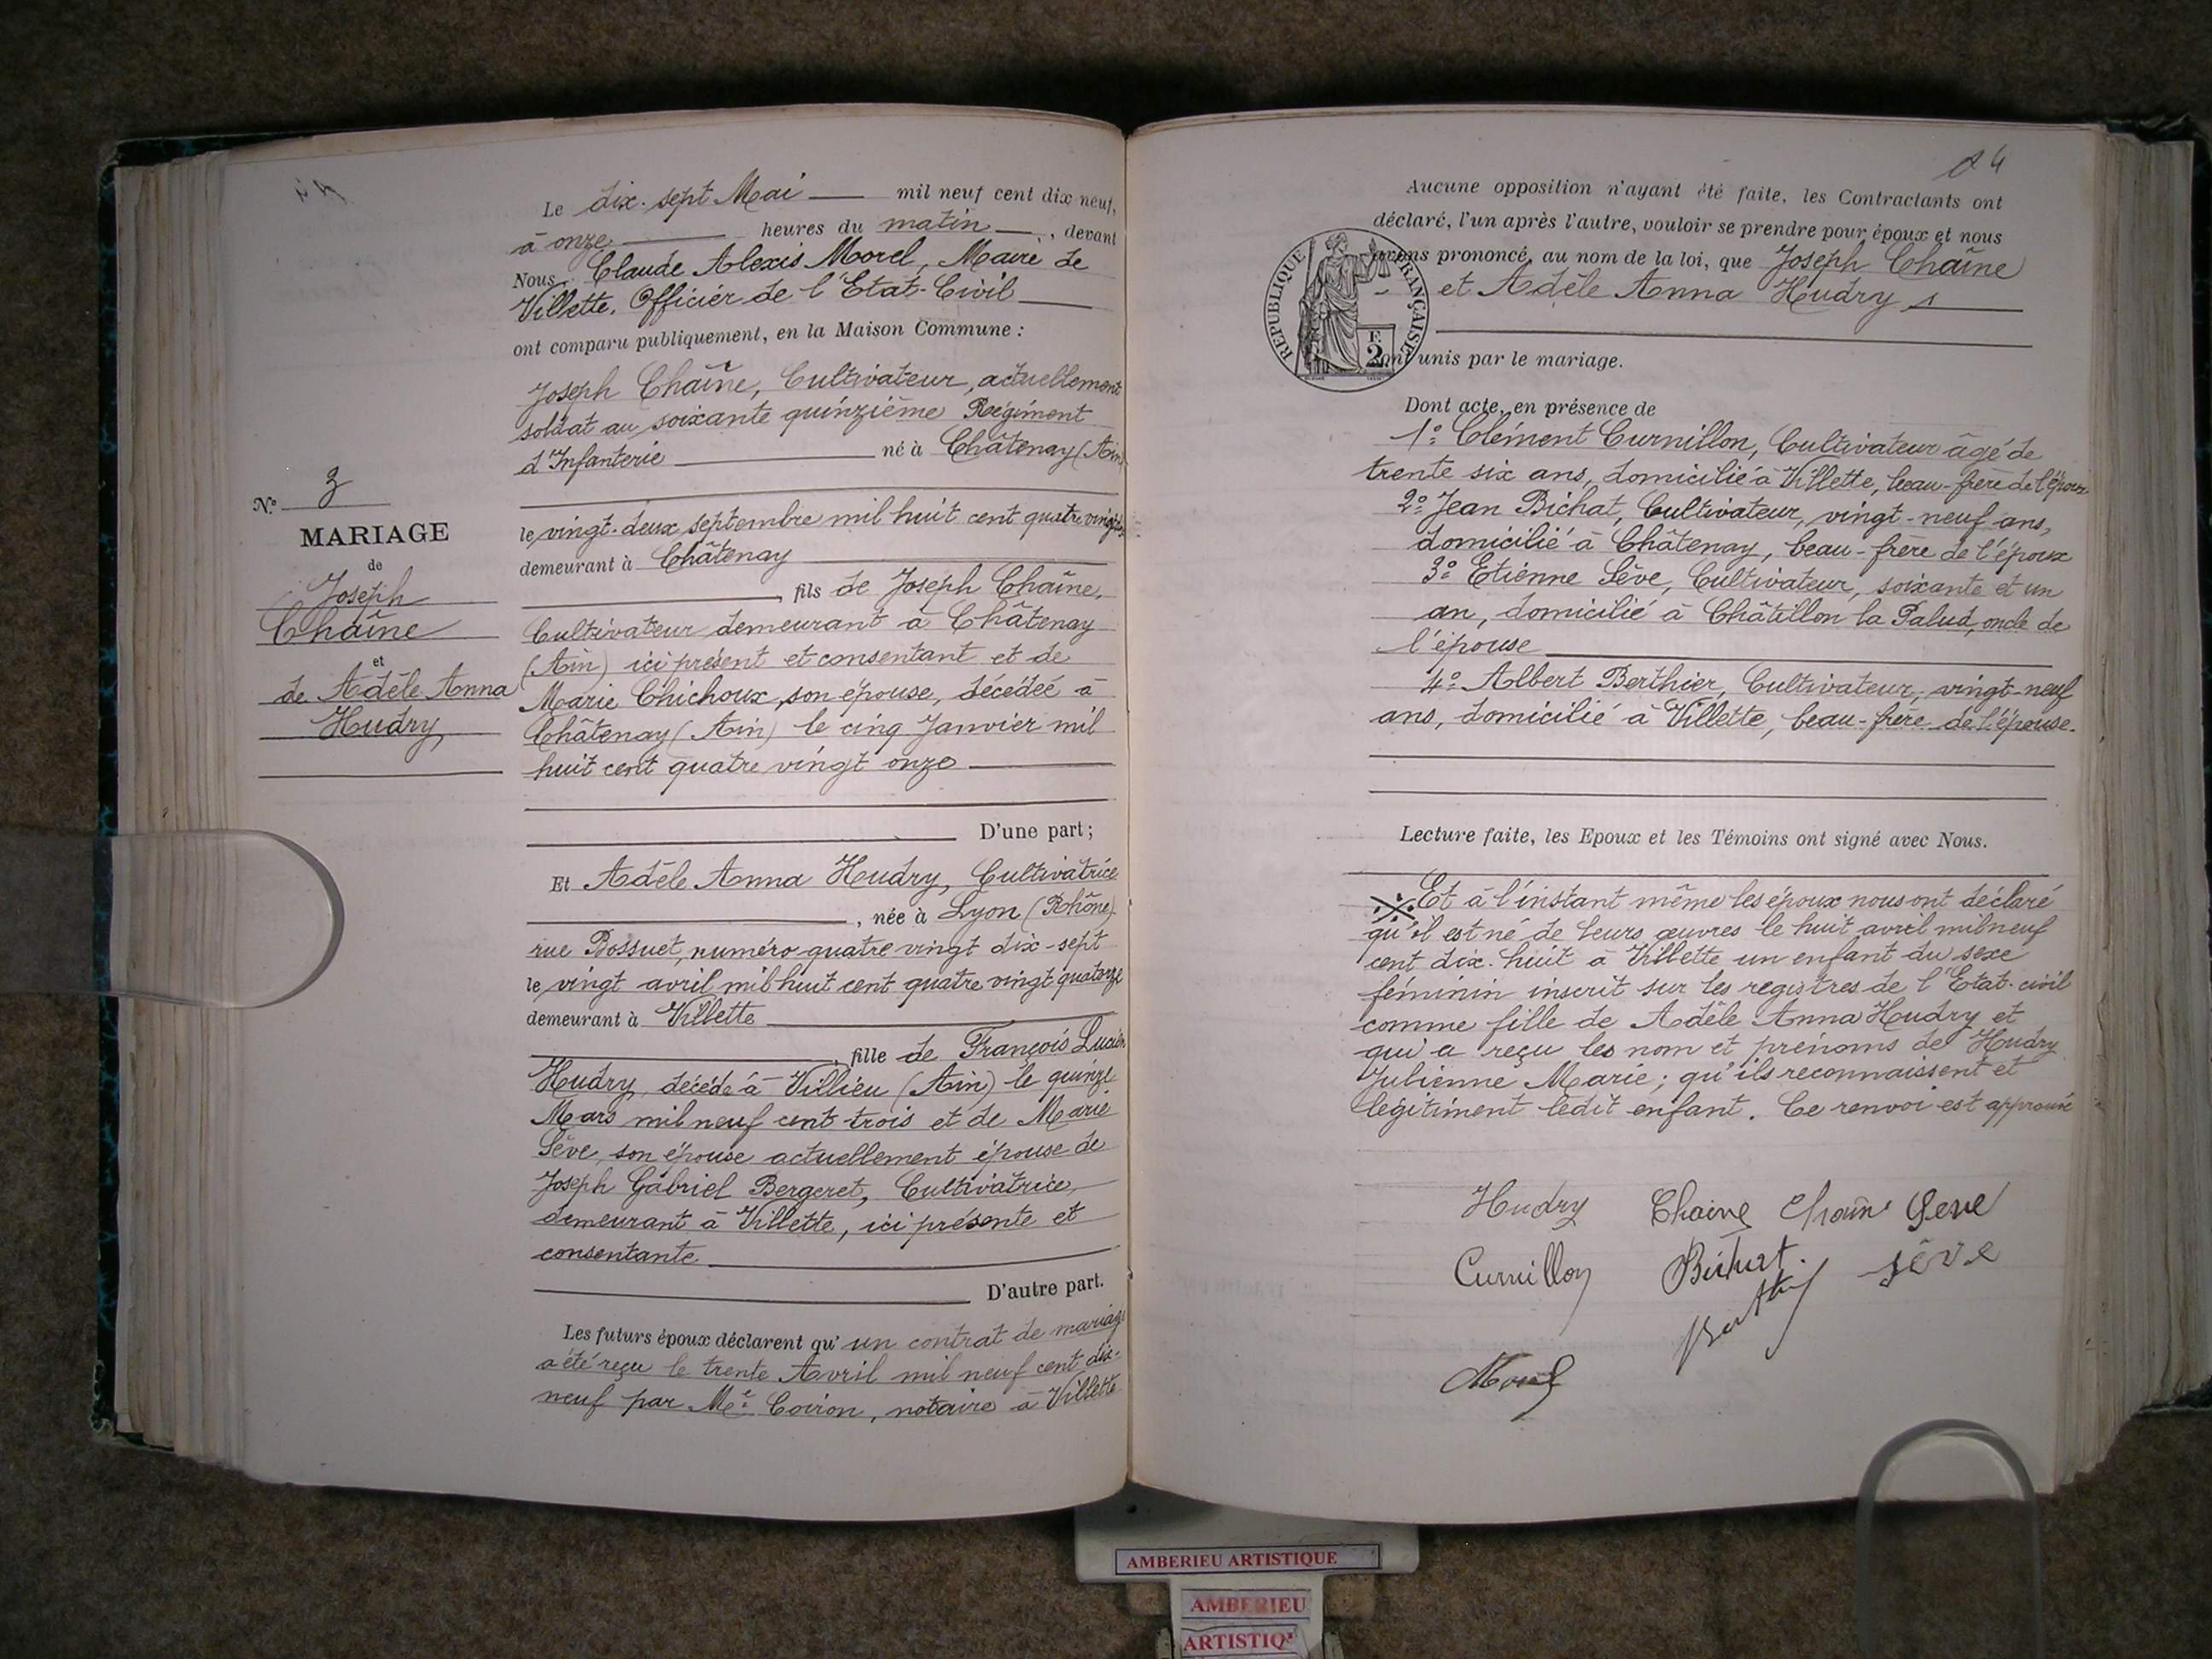 Le dix-sept Mai mil neuf cent dix neuf,
à onze heures du matin, devant
Nous Claude Alexis Morel, Maire de
Villette, Officier de l'Etat-Civil
ont comparu publiquement, en la Maison Commune :
Joseph Chaîne, Cultivateur, actuellement
soldat au soixante quinzième Régiment
d'Infanterie né à Châtenay (Ain)
le vingt-deux septembre mil huit cent quatre vingt
demeurant à Châtenay
, fils de Joseph Chaîne,
Cultivateur demeurant à Châtenay
(Ain) ici présent et consentant et de
Marie Chichoux, son épouse, décédée à
Châtenay (Ain) le cinq Janvier mil
huit cent quatre vingt onze
D'une part ;
Et Adèle Anna Hudry, Cultivatrice
, née à Lyon (Rhône)
rue Bossuet, numéro quatre vingt dix-sept
le vingt avril mil huit cent quatre vingt quatorze
demeurant à Villette
, fille de François Lucien
Hudry, décédé à Villieu (Ain) le quinze
Mars mil neuf cent trois et de Marie
Sève, son épouse actuellement épouse de
Joseph Gabriel Bergeret, Cultivatrice,
demeurant à Villette, ici présente et
consentante
D'autre part.
Les futurs époux déclarent qu'un contrat de mariage
a été reçu le trente Avril mil neuf cent dix-
neuf par Me Coiron, notaire à Villette
N° 3
MARIAGE
de
Joseph
Chaîne
et
de Adèle Anna
Hudry
84
Aucune opposition n'ayant été faite, les Contractants ont
déclaré, l'un après l'autre, vouloir se prendre pour époux et nous
avons prononcé, au nom de la loi, que Joseph Chaîne
et Adèle Anna Hudry
sont unis par le mariage.
REPUBLIQUE FRANÇAISE
2F.
Dont acte, en présence de
1° Clément Curnillon, Cultivateur âgé de
trente six ans, domicilié à Villette, beau-frère de l'époux
2° Jean Bichat, Cultivateur, vingt-neuf ans,
domicilié à Châtenay, beau-frère de l'époux
3° Etienne Sève, Cultivateur, soixante et un
an, domicilié à Châtillon la Palud, oncle de
l'épouse
4° Albert Berthier, Cultivateur, vingt-neuf
ans, domicilié à Villette, beau-frère de l'épouse.
Lecture faite, les Epoux et les Témoins ont signé avec Nous.
※ Et à l'instant même les époux nous ont déclaré
qu'il est né de leurs œuvres le huit avril mil neuf
cent dix-huit à Villette un enfant du sexe
féminin inscrit sur les registres de l'Etat-civil
comme fille de Adèle Anna Hudry et
qui a reçu les nom et prénoms de Hudry
Julienne Marie ; qu'ils reconnaissent et
légitiment ledit enfant. Ce renvoi est approuvé
Hudry Chaine Chaîne Seve
Curnillon Bichat. sève
Berthier
Morel
AMBERIEU ARTISTIQUE
AMBERIEU
ARTISTIQ